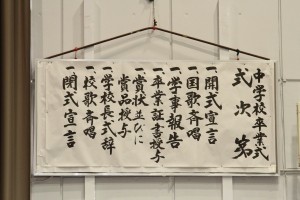 中学校卒業式
式次第
一開式宣言
一国歌斉唱
一学事報告
一卒業証書授与
一賞状並びに
賞品授与
一学校長式辞
一校歌斉唱
一閉式宣言